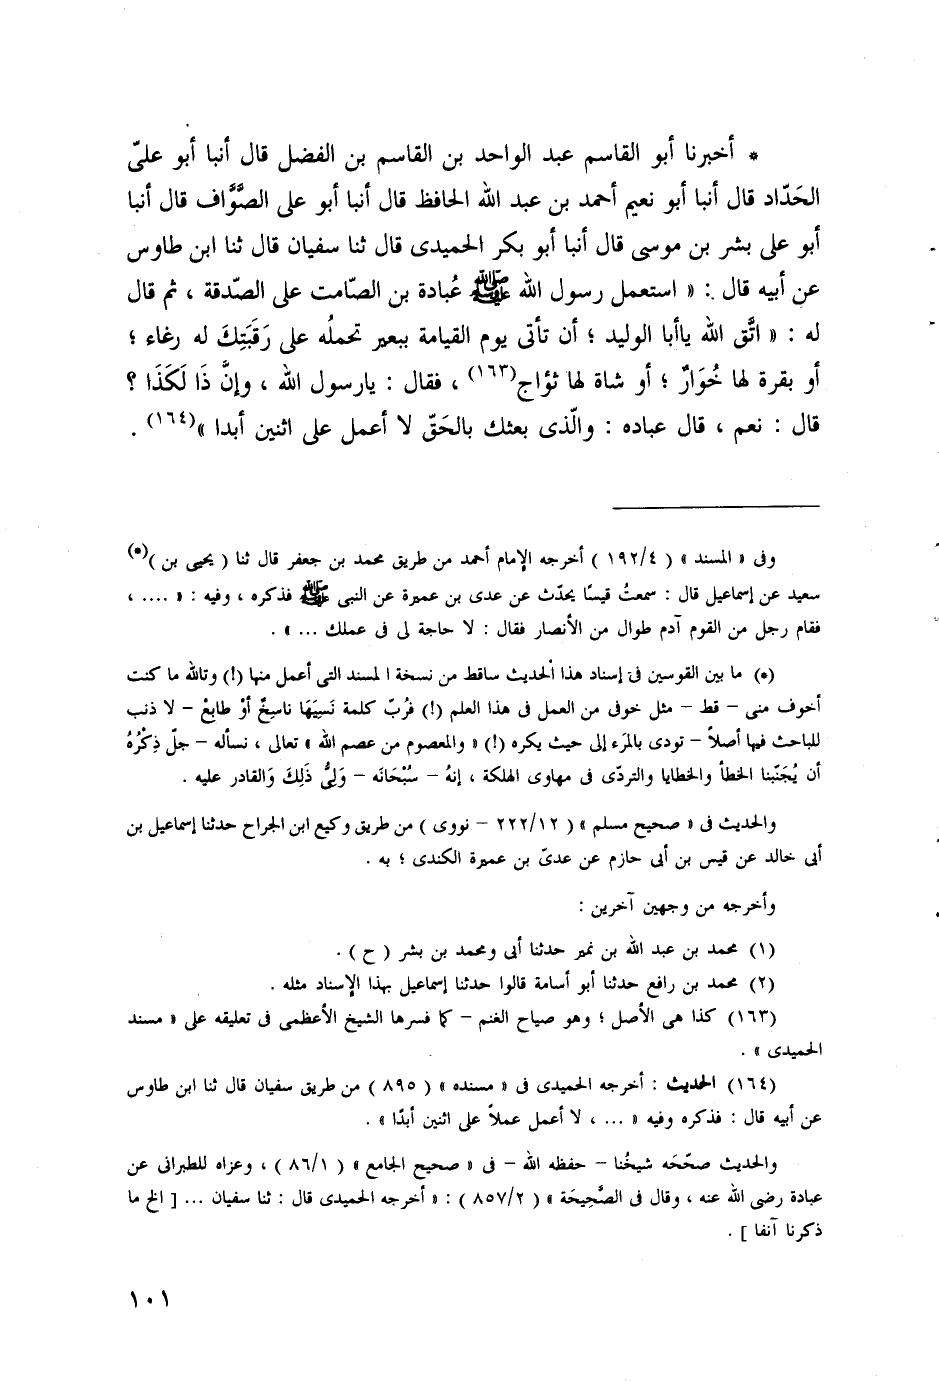 * أخبرنا أبو القاسم عبد الواحد بن القاسم بن الفضل قال أنبا أبو علىّ
الحَدّاد قال أنبا أبو نعيم أحمد بن عبد الله الحافظ قال أنبا أبو على الصَّوَّاف قال أنبا
أبو على بشر بن موسى قال أنبا أبو بكر الحميدى قال ثنا سفيان قال ثنا ابن طاوس
عن أبيه قال : « استعمل رسول الله ﷺ عُبادة بن الصّامت على الصّدقة ، ثم قال
له : « اتَّق الله ياأبا الوليد ؛ أن تأتى يوم القيامة ببعير تحملُه على رَقَبَتِكَ له رغاء ؛
أو بقرة لها خُوَارٌ ؛ أو شاة لها ثؤاج(١٦٣) ، فقال : يارسول الله ، وإنَّ ذَا لَكَذَا ؟
قال : نعم ، قال عباده : والّذى بعثك بالحَقّ لا أعمل على اثنين أبدا »(١٦٤) .
وفى « المسند » ( ١٩٢/٤ ) أخرجه الإمام أحمد من طريق محمد بن جعفر قال ثنا ( يحيى بن )(*)
سعيد عن إسماعيل قال : سمعتُ قيسًا يحدّث عن عدى بن عميرة عن النبى ﷺ فذكره ، وفيه : « .... ،
فقام رجل من القوم آدم طوال من الأنصار فقال : لا حاجة لى فى عملك ... » .
(*) ما بين القوسين فى إسناد هذا الحديث ساقط من نسخة المسند التى أعمل منها (!) وتالله ما كنت
أخوف منى – قط – مثل خوفى من العمل فى هذا العلم (!) فرُبّ كلمة نَسِيَهَا ناسِخٌ أوْ طابِعْ – لا ذنب
للباحث فيها أصلاً – تودى بالمرَء إلى حيث يكره (!) « والمعصوم من عصم الله » تعالى ، نسأله – جلّ ذِكْرُهُ
أن يُجَنّبنا الخطأ والخطايا والتردّى فى مهاوى الهلكة ، إنهُ – سُبْحَانَه – وَلِىُّ ذَلِكَ وَالقادر عليه .
والحديث فى « صحيح مسلم » ( ٢٢٢/١٢ – نووى ) من طريق وكيع ابن الجراح حدثنا إسماعيل بن
أبى خالد عن قيس بن أبى حازم عن عدىّ بن عميرة الكندى ؛ به .
وأخرجه من وجهين آخرين :
(١) محمد بن عبد الله بن نمير حدثنا أبى ومحمد بن بشر ( ح ) .
(٢) محمد بن رافع حدثنا أبو أسامة قالوا حدثنا إسماعيل بهذا الإسناد مثله .
(١٦٣) كذا هى الأصل ؛ وهو صياح الغنم – كما فسرها الشيخ الأعظمى فى تعليقه على « مسند
الحميدى » .
(١٦٤) الحديث : أخرجه الحميدى فى « مسنده » ( ٨٩٥ ) من طريق سفيان قال ثنا ابن طاوس
عن أبيه قال : فذكره وفيه « ... ، لا أعمل عملاً على اثنين أبدًا » .
والحديث صحّحَه شيخُنا – حفظه الله – فى « صحيح الجامع » ( ٨٦/١ ) ، وعزاه للطبرانى عن
عبادة رضى الله عنه ، وقال فى الصَّحِيحَة » ( ٨٥٧/٢ ) : « أخرجه الحميدى قال : ثنا سفيان ... [ الخ ما
ذكرنا آنفا ] .
١٠١